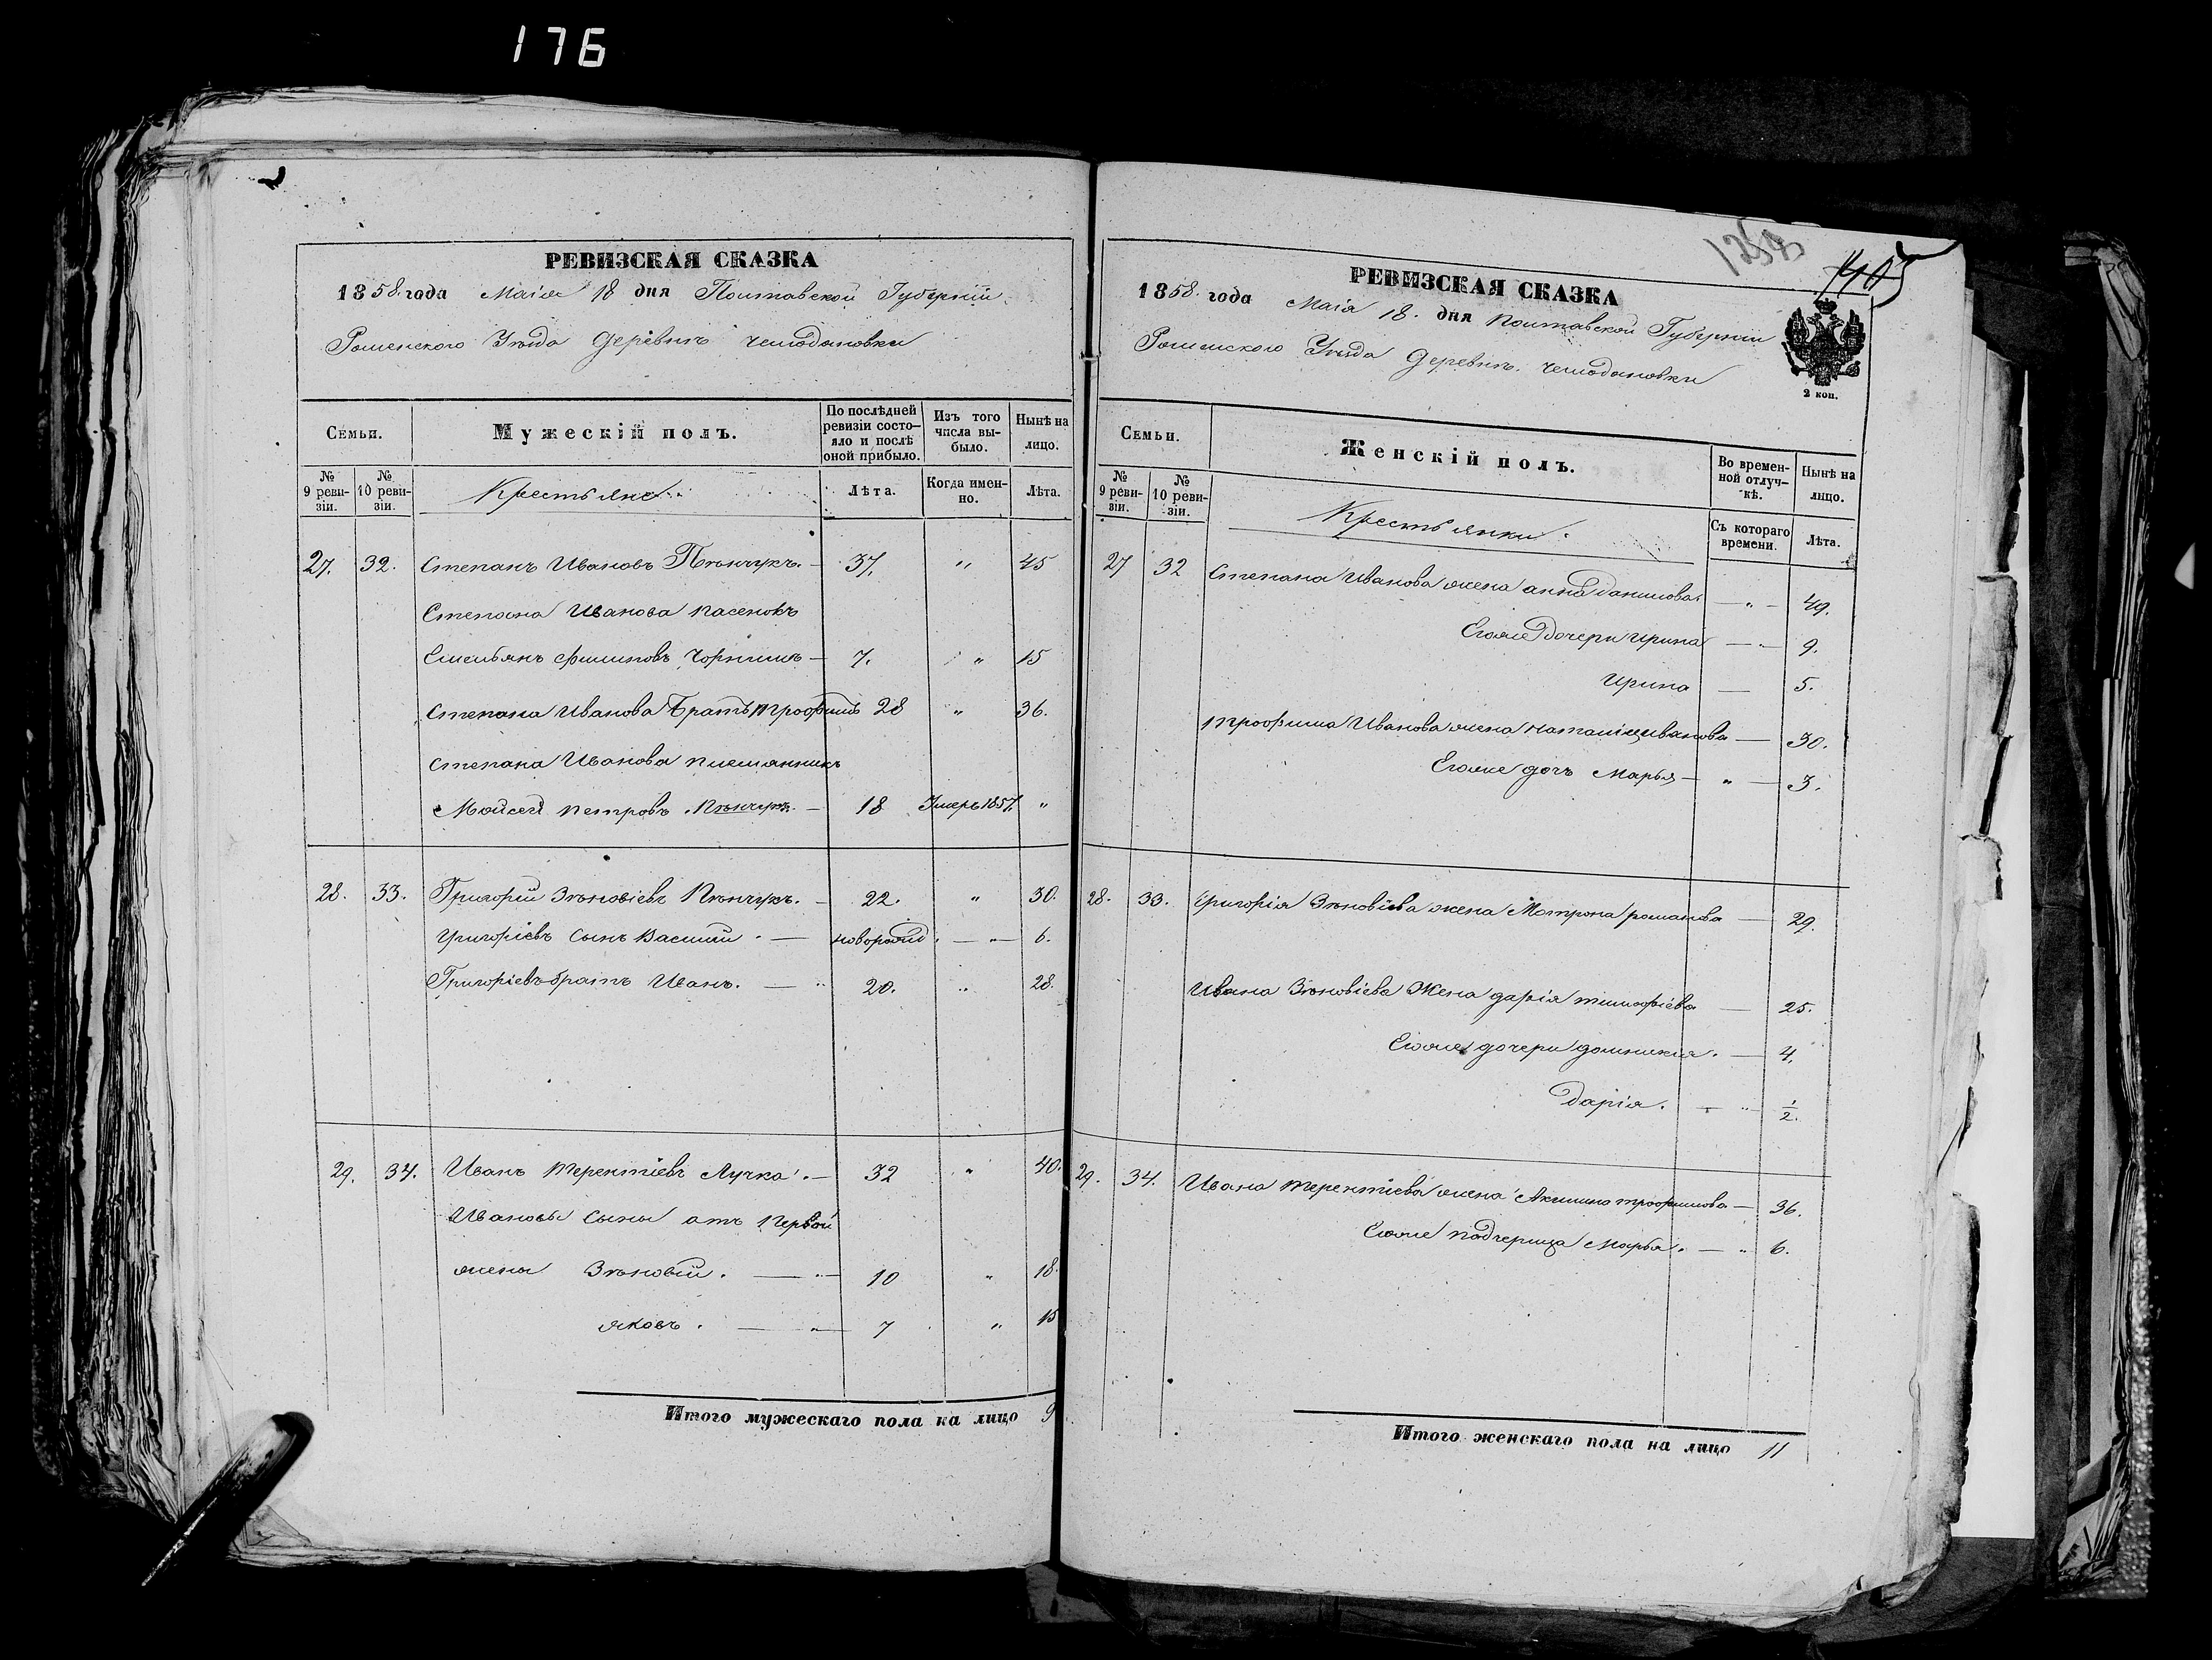 176
РЕВИЗСКАЯ СКАЗКА
1858. года Маія 18 дня Полтавской Губерніи
Роменского Уезда Деревнѣ Чемодановки
Семьи.
Мужескій полъ.
По послѣдней ревизіи состояло и послѣ оной прибыло.
Изъ того числа выбыло.
Нынѣ на лицо.
№ 9 ревизіи.
№ 10 ревизіи.
Крестьяне
Лѣта.
Когда именно.
Лѣта.
27. 32. Степанъ Ивановъ Пѣнчукъ. — 37. „ 45
Степана Иванова пасенокъ
Емельянъ Филиповъ — 7. „ 15
Степана Иванова Братъ Трофимъ 28 „ 36.
Степана Иванова племянникъ
Мойсей Петровъ Пѣнчукъ. — 18 Умеръ 1857. „
28. 33. Григорій Зѣновіевъ Пѣнчукъ. — 22. „ 30.
Григоріевъ Сынъ Василій. — новорожд. — „ — 6.
Григоріевъ братъ Иванъ. — „ 20. „ 28.
29. 34. Иванъ Терентіевъ Лучка. — 32 „ 40.
Ивановы Сыны отъ Первой
жены Зѣновій. — „ — 10 „ 18.
Яковъ. — „ — 7 „ 15
Итого мужескаго пола на лицо 9
1258
РЕВИЗСКАЯ СКАЗКА
1858. года Маія 18. дня Полтавской Губерніи
Роменского Уезда Деревнѣ. Чемодановки
2 коп.
Семьи.
Женскій полъ.
Во временной отлучкѣ.
Нынѣ на лицо.
№ 9 ревизіи.
№ 10 ревизіи.
Крестьянки.
Съ котораго времени.
Лѣта.
27 32 Степана Иванова жена Анна Данилова — „ — 49.
Егоже Дочери Ирина — „ — 9.
Ирина — 5.
Трофима Иванова жена Наталія Иванова — 30.
Егоже дочь Марья — „ — 3.
28. 33. Григорія Зѣновіева жена Мотрона Романова — 29.
Ивана Зѣновіева Жена Дарія Тимофіева — 25.
Егоже дочери Домникия. — 4.
Дарія. — „ — 1/2.
29. 34. Ивана Терентіева жена Акилина Трофимова — 36.
Егоже падчерица Марья. — „ 6.
Итого женскаго пола на лицо 11